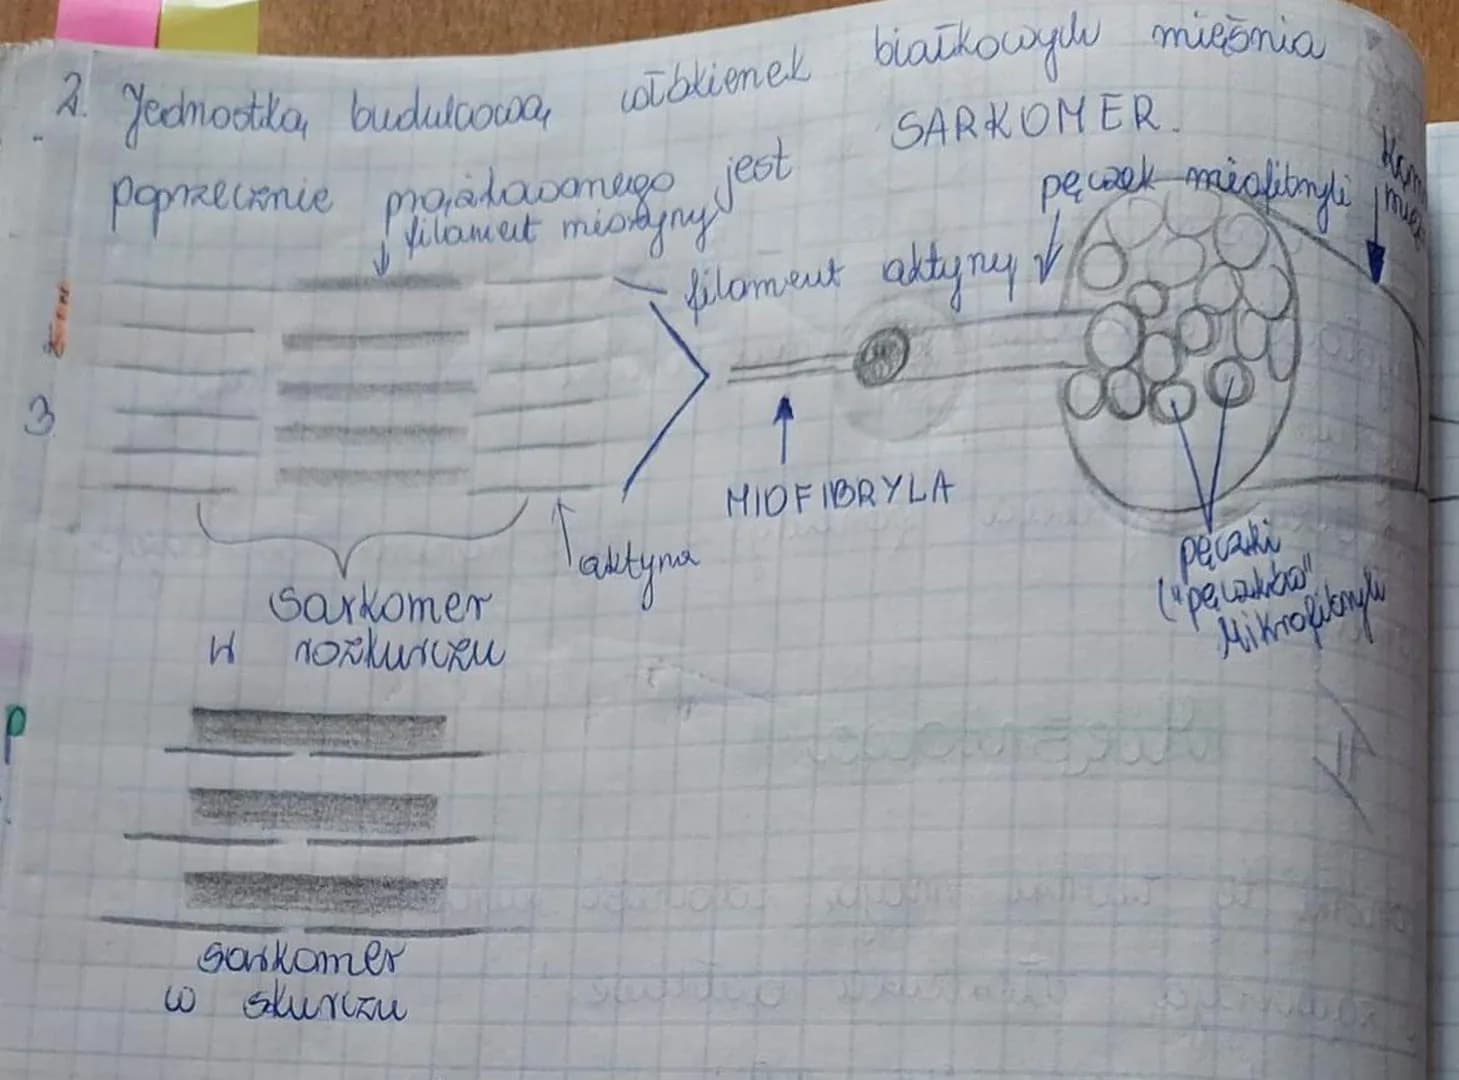 2. Jednostką budulcową włókienek białkowych mięśnia
poprzecznie prążkowanego jest SARKOMER.
filament miozyny
filament aktyny
pęczek miofibryli
3
MIOFIBRYLA
aktyna
sarkomer
w rozkurczu
pęczki
("pęczków"
Mikrofibryli
P
sarkomer
w skurczu